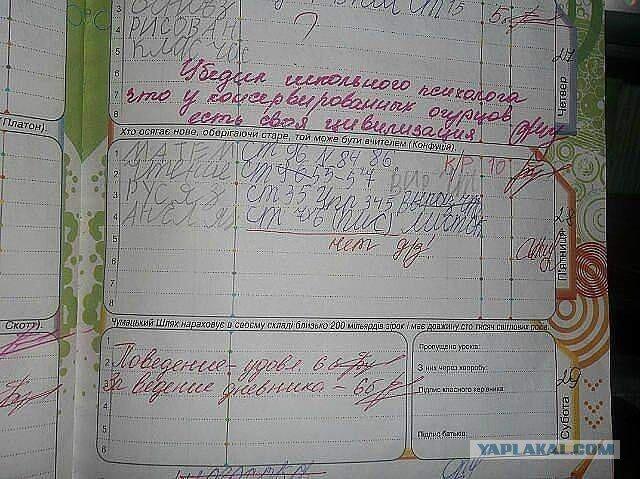 РИСОВАН
КЛАС ЧАС
?
5б.
3
4
5
6
7
8
27
Четвер
Убедил школьного психолога
что у консервированных огурцов
есть своя цивилизация
Платон).
Хто осягає нове, оберігаючи старе, той може бути вчителем (Конфуцій).
1
2
3
4
5
6
7
8
МАТЕМ СТ 86 N 84 86 К/Р 10
ЧТЕНИЕ СТ 55-57
РУС ЯЗ СТ 35 упр 345
АНГЛ. ЯЗ СТ (ПИС) ЛИСТОК
нет д/з!
28
П'ятниця
Скотт).
Чумацький Шлях нараховує в своєму складі близько 200 мільярдів зірок і має довжину сто тисяч світлових років.
1
2
3
4
5
6
Поведение - удовл. 6б
за ведение дневника - 6б
Пропущено уроків:
З них через хворобу:
Підпис класного керівника:
Підпис батьків:
29
Субота
YAPLAKAL.COM